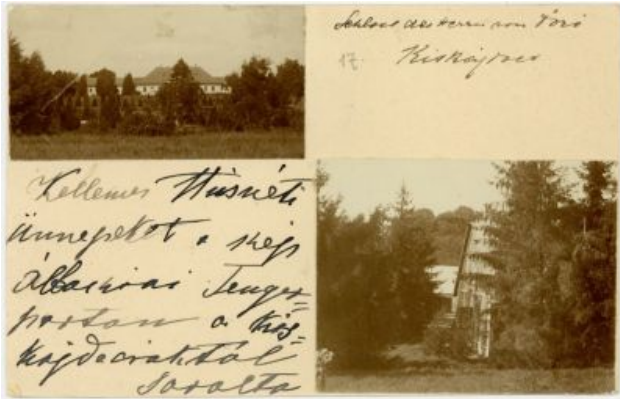 Schloss des Herrn von Vözi
17. Kiskajdacs
Kellemes Húsvéti
ünnepeket a szép
Abbaziai Tenger=
parton a Kis=
kajdacsiaktól
Sarolta